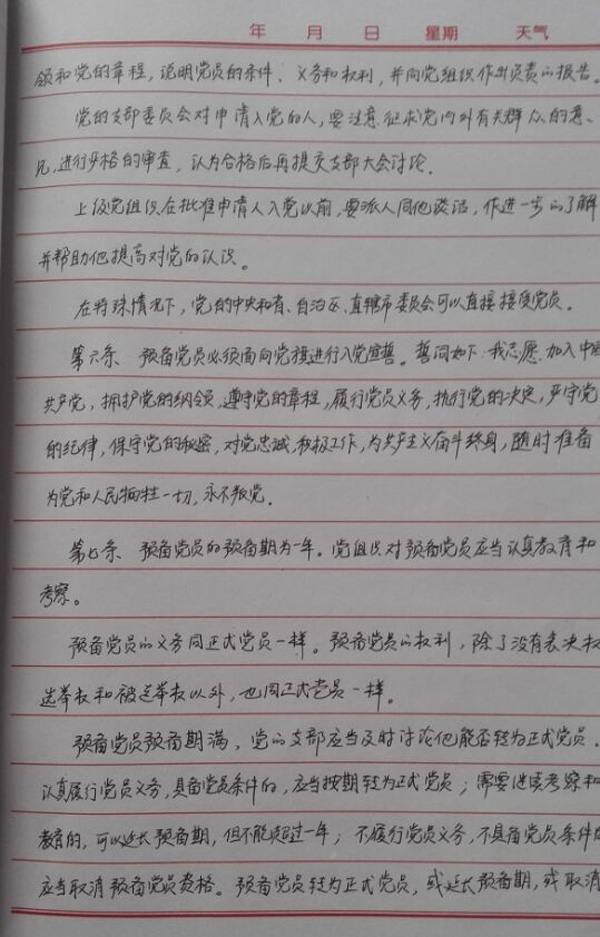 年 月 日 星期 天气
领和党的章程，说明党员的条件、义务和权利，并向党组织作出负责的报告。
党的支部委员会对申请入党的人，要注意征求党内外有关群众的意
见，进行严格的审查，认为合格后再提交支部大会讨论。
上级党组织在批准申请人入党以前，要派人同他谈话，作进一步的了解
并帮助他提高对党的认识。
在特殊情况下，党的中央和省、自治区、直辖市委员会可以直接接受党员。
第六条 预备党员必须面向党旗进行入党宣誓。誓词如下：我志愿加入中国
共产党，拥护党的纲领，遵守党的章程，履行党员义务，执行党的决定，严守党
的纪律，保守党的秘密，对党忠诚，积极工作，为共产主义奋斗终身，随时准备
为党和人民牺牲一切，永不叛党。
第七条 预备党员的预备期为一年。党组织对预备党员应当认真教育和
考察。
预备党员的义务同正式党员一样。预备党员的权利，除了没有表决权
选举权和被选举权以外，也同正式党员一样。
预备党员预备期满，党的支部应当及时讨论他能否转为正式党员。
认真履行党员义务，具备党员条件的，应当按期转为正式党员；需要继续考察和
教育的，可以延长预备期，但不能超过一年；不履行党员义务，不具备党员条件的
应当取消预备党员资格。预备党员转为正式党员，或延长预备期，或取消